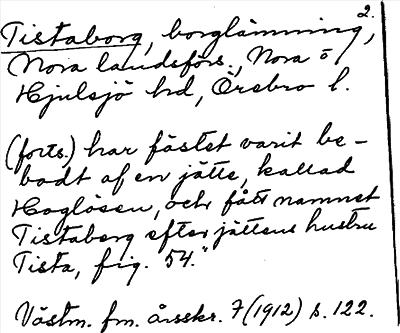 2.
Tistaborg, borglämning,
Nora landsförs., Nora o
Hjulsjö hd, Örebro l.
(forts.) har fästet varit be-
bodt af en jätte, kallad
Hoglösen, och fått namnet
Tistaborg efter jättens hustru
Tista, fig. 54."
Västm. fm. årsskr. 7 (1912) s. 122.